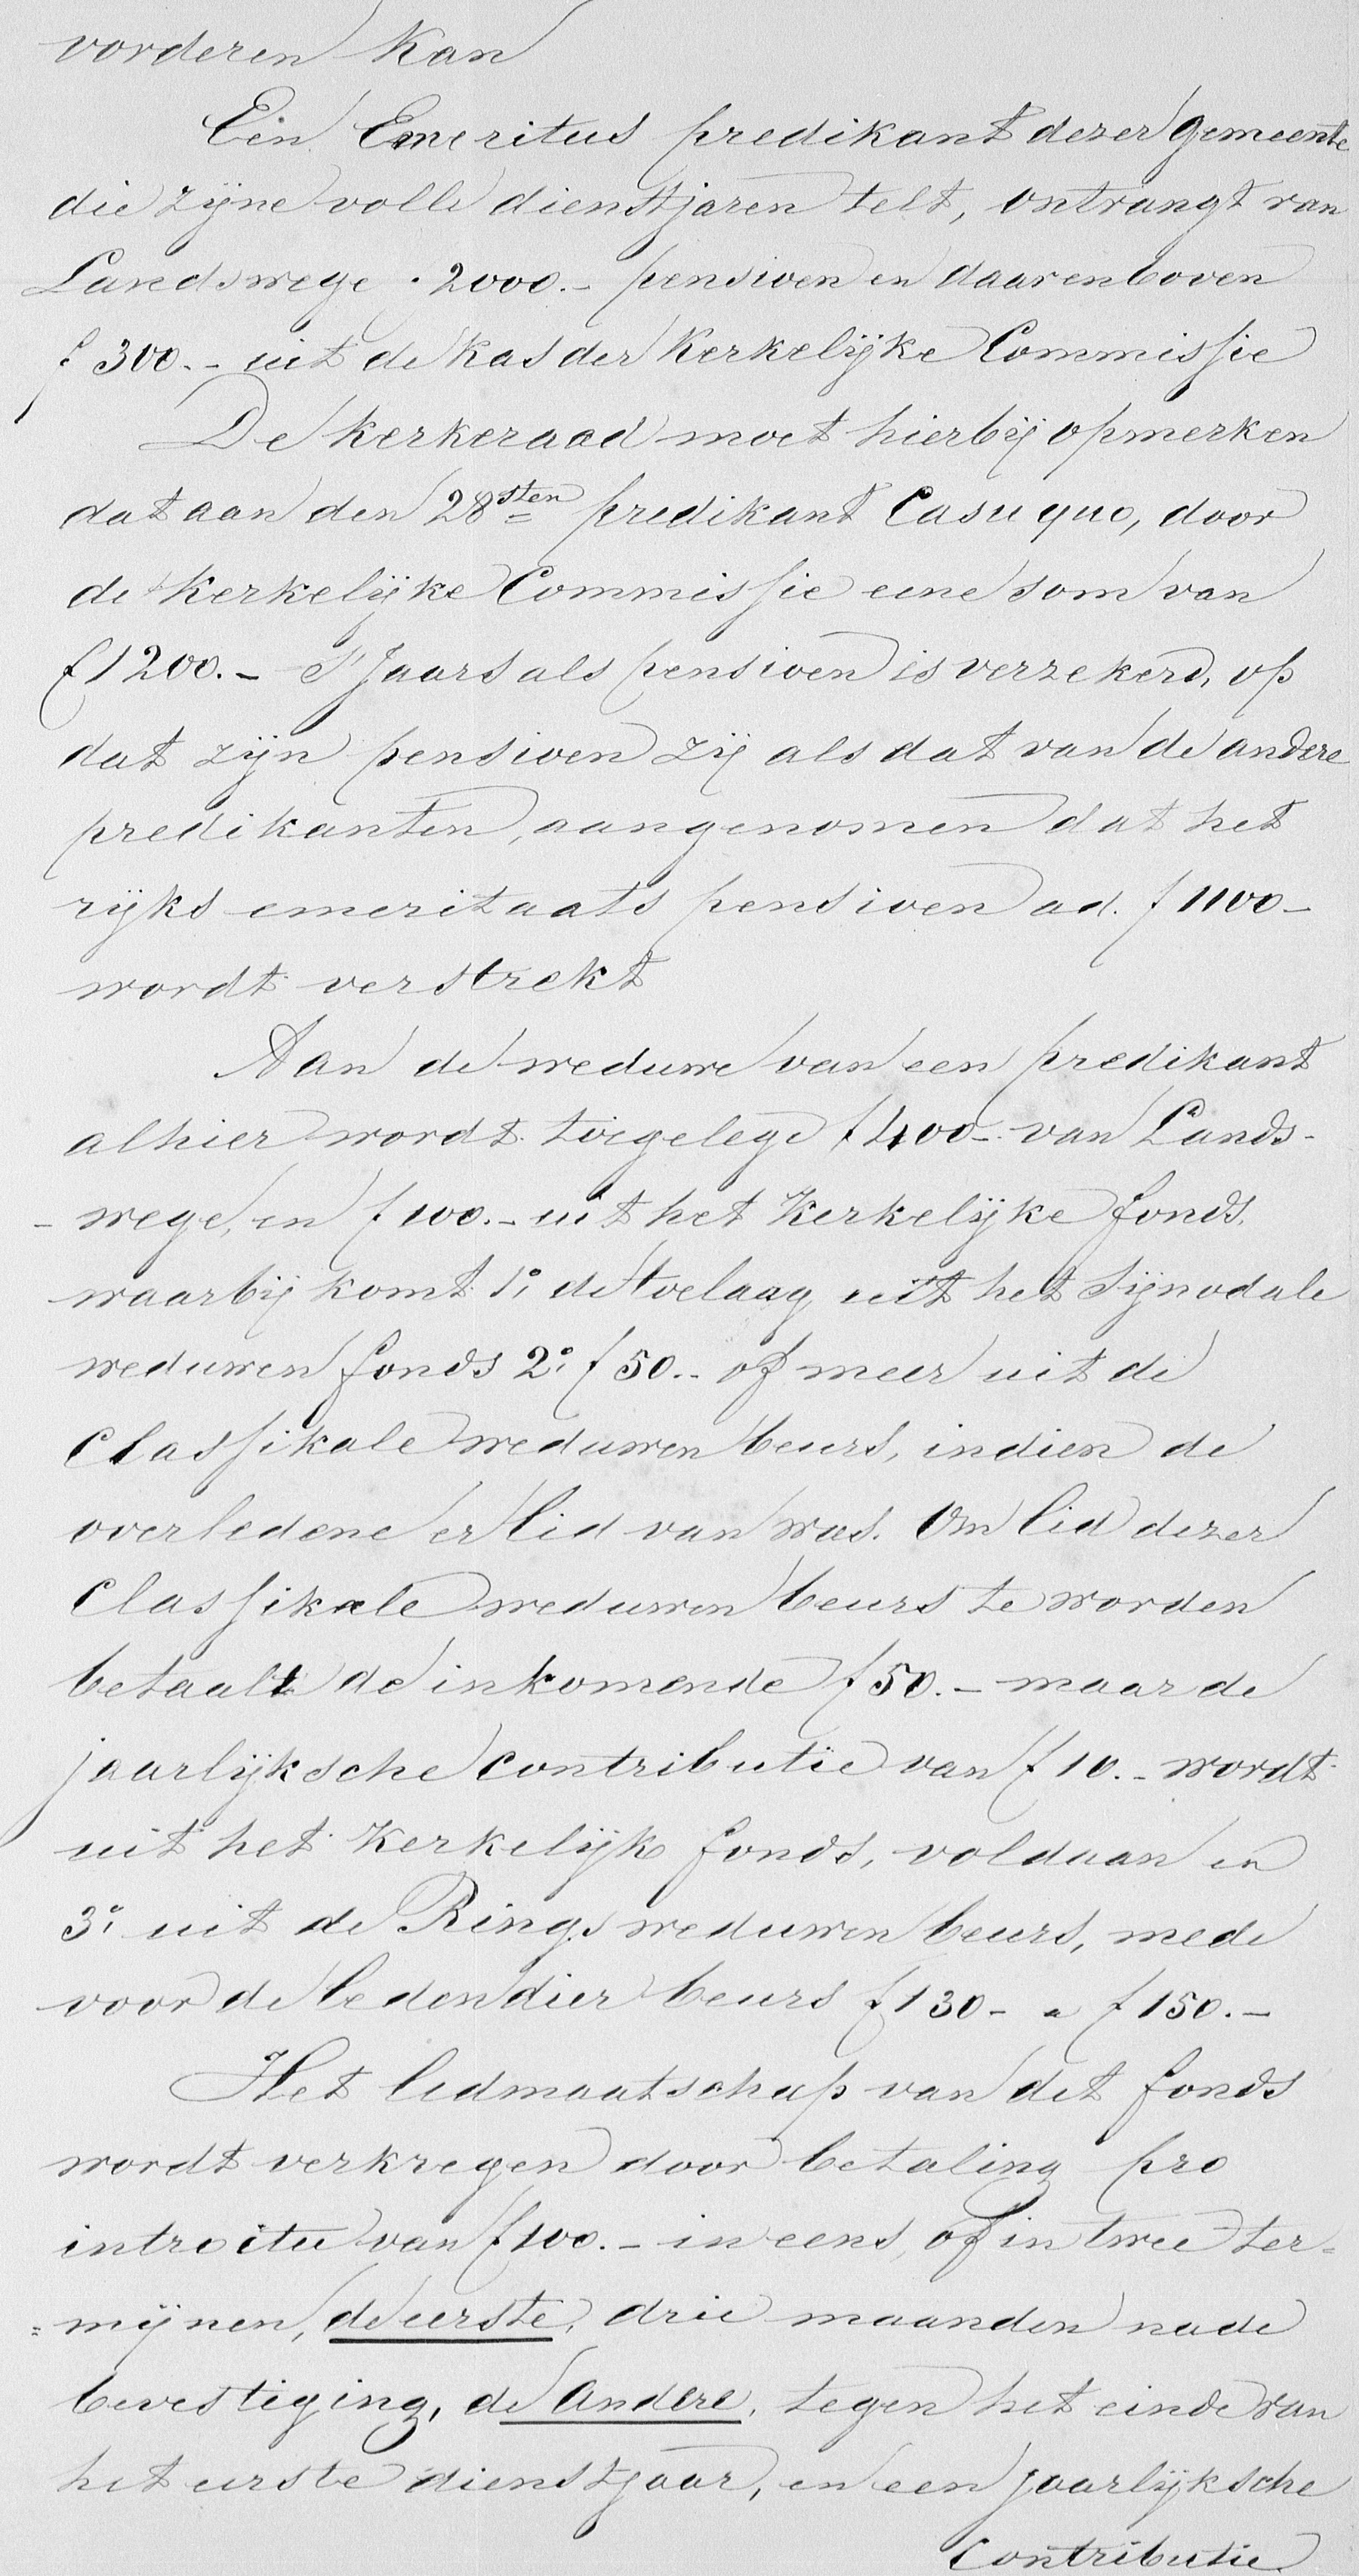 vorderen kan
Een Emeritus predikant dezer gemeente
die zijne volle dienstjaren telt, ontvangt van
Landswege . 2000.- pensioen en daarenboven
f 300.- uit de kas der Kerkelijke Commissie
De kerkeraad moet hierbij opmerken
dat aan den 28sten predikant Casu quo, door
de Kerkelijke Commissie eene som van
f 1200.- 's Jaars als pensioen is verzekerd, op
dat zijn pensioen zij als dat van de andere
predikanten, aangenomen dat het
rijks emeritaats pensioen ad. f 1100-
wordt verstrekt
Aan de weduwe van een predikant
alhier wordt toegelegd f 400.- van Lands-
- wege, en f 100.- uit het Kerkelijke fonds.
waarbij komt 1o. de toelaag uit het Sijnodale
weduwen fonds 2o. f 50.- of meer uit de
Classikale weduwen beurs, indien de
overledene er lid van was. Om lid dezer
Classikale weduwen beurs te worden
betaalt de inkomende f 50.- maar de
jaarlijksche contributie van f 10.- wordt
uit het Kerkelijk fonds, voldaan en
3o. uit de Rings weduwen beurs, mede
voor de leden dier beurs f 130- a f 150.-
Het lidmaatschap van dit fonds
wordt verkregen door betaling pro
introitu van f 100.- in eens, of in twee ter=
= mijnen, de eerste, drie maanden na de
bevestiging, de andere, tegen het einde van
het eerste dienstjaar, en een jaarlijksche
contributie